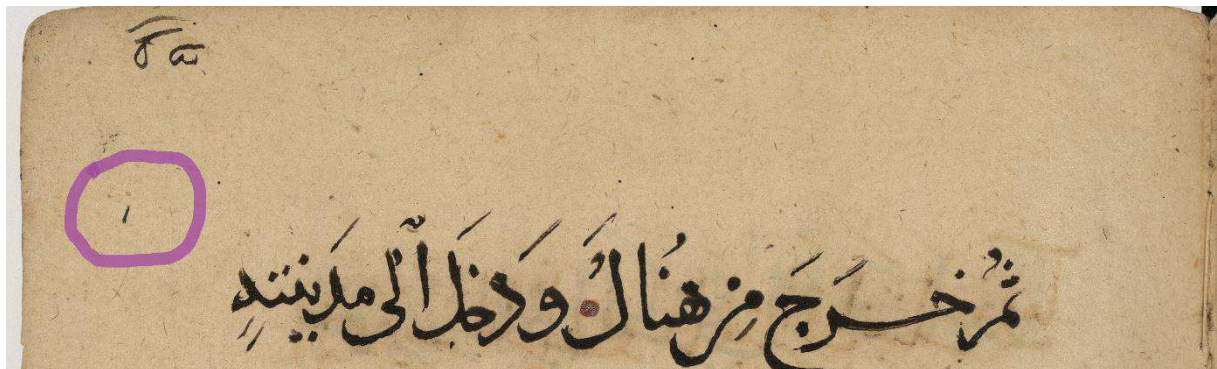 ١
ثُمَّ خَرَجَ مِن هُنَاكَ وَدَخَلَ اَلٰى مَدَينَتِهِ